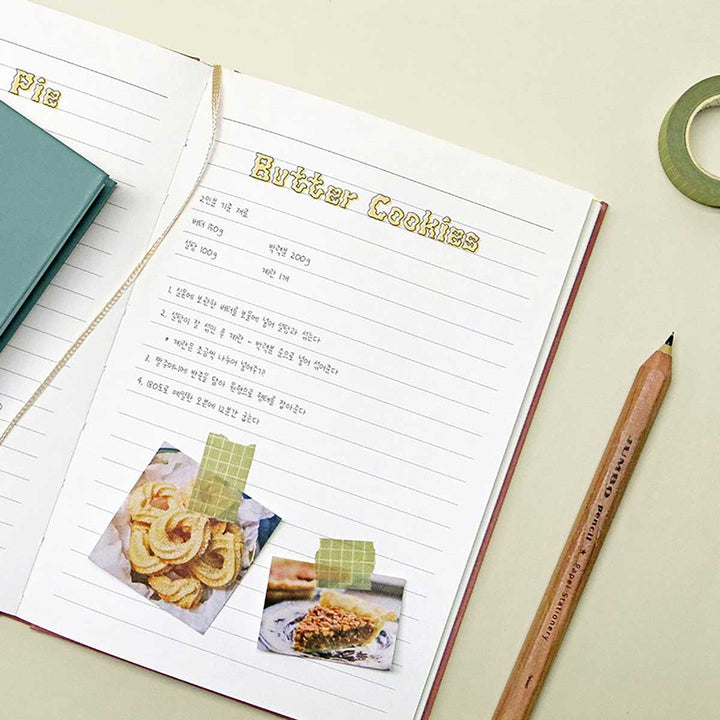 Pie
Butter Cookies
2인분 기준 재료
버터 130g
박력분 200g
설탕 100g
계란 1개
1. 실온에 보관한 버터를 보울에 넣어 설탕과 섞는다
2. 설탕이 잘 섞인 후 계란 - 박력분 순으로 넣어 섞어준다
* 계란은 조금씩 나누어 넣어주기
3. 짤주머니에 반죽을 담아 원형으로 형태를 잡아준다
4. 180도로 예열한 오븐에 12분간 굽는다
JUMBO pencil ★ Paper Stationery